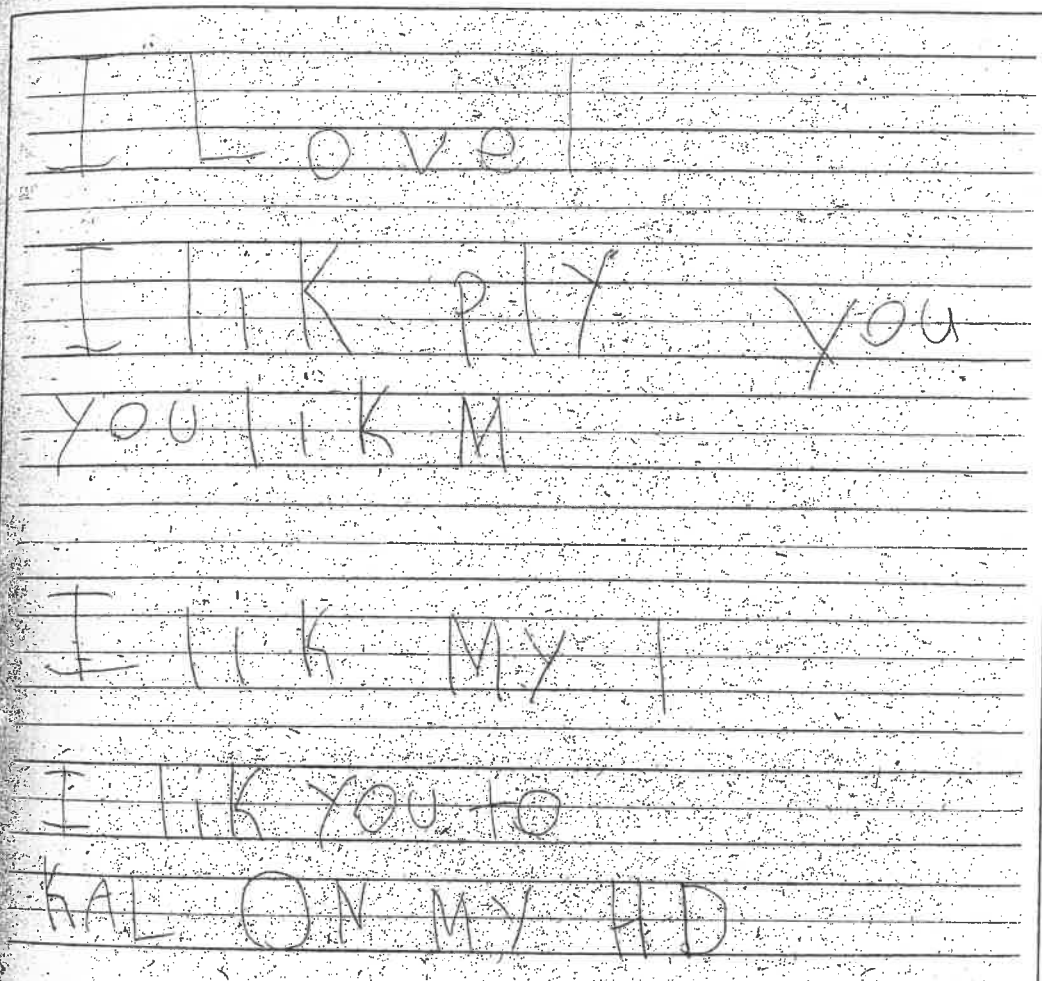 I Love l
I lik ply you
you lik M
I lik My l
I lik you to
KAL ON MY HD